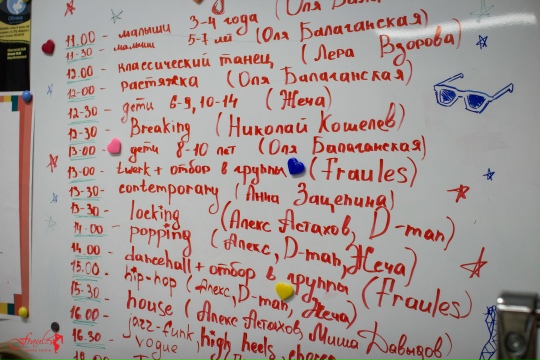 (Оля Бала
11.00 - малыши 3-4 года (Оля Балаганская)
11-30 - малыши 5-7 лет (Оля Балаганская)
12.00 - классический танец (Лера Вздорова)
12-00 - растяжка (Оля Балаганская)
12-30 - дети 6-9, 10-14 (Жеча)
13-30 - Breaking (Николай Кошелев)
13-00 дети 8-10 лет (Оля Балаганская)
13-00 - twerk + отбор в группы (fraules)
13-30 - contemporary (Анна Зацепина)
13-30 - locking (Алекс Астахов, D-man)
14.00 - popping (Алекс, D-man, Жеча)
14.00 - dancehall + отбор в группы (fraules)
15.00 - hip-hop (Алекс, D-man, Жеча)
15-30 - house (Алекс Астахов, Миша Давыдов)
16.00 - jazz-funk, high heels, choreo
16.30 - vogue
fraules